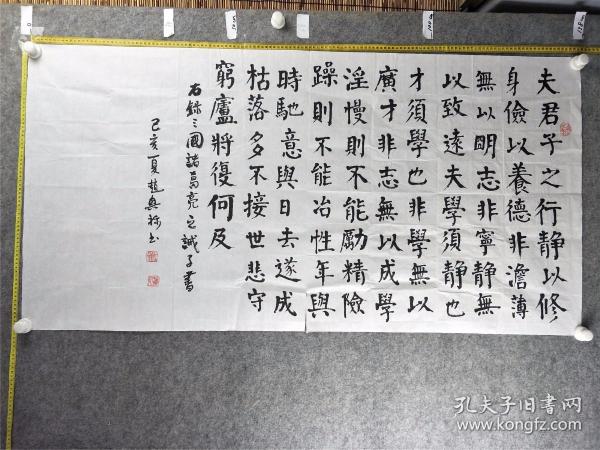 夫君子之行静以修
身儉以養德非澹薄
無以明志非寧静無
以致遠夫學須静也
才須學也非學無以
廣才非志無以成學
淫慢則不能勵精險
躁則不能冶性年與
時馳意與日去遂成
枯落多不接世悲守
窮廬將復何及
右錄三國諸葛亮之誡子書
己亥夏趙書
孔夫子旧书网
www.kongfz.com